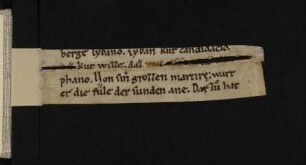 berge lybano. lyban kut candidacio.
kut wisse. daz
phano. Von sin̄ grozzen martirẏ; wart
er die sule der sunden ane. Daz sin̄ hat